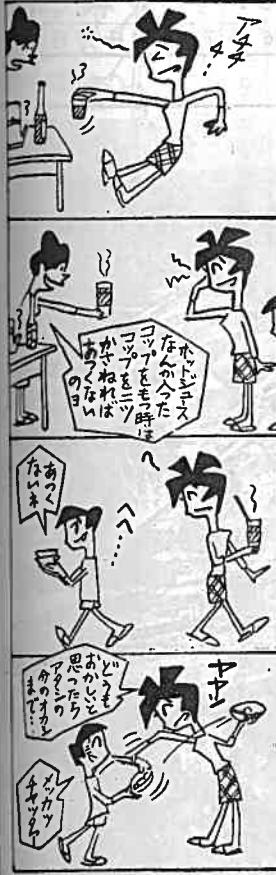 アチチ
チ…
ホットジュース
なんか入った
コップをもつ時は
コップを二ツ
かさねれば
あつくない
のヨ
あつく
ないネ
ヘヘ…
ヤヤッ
どうも
おかしいと
思ったら
アタシの
分のオカシ
まで…
メッカッ
チャッター